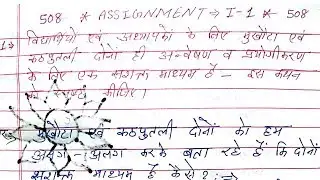 508 * ASSIGNMENT → I-1 * 508
1→ विद्यार्थियों एवं अध्यापकों के लिए मुखौटा एवं
कठपुतली दोनों ही अन्वेषण व प्रयोगीकरण
के लिए एक सशक्त माध्यम हैं - इस कथन
को स्पष्ट कीजिए।
मुखौटा एवं कठपुतली दोनों को हम
अलग-अलग करके बता रहे हैं कि दोनों
सशक्त माध्यम हैं कैसे?